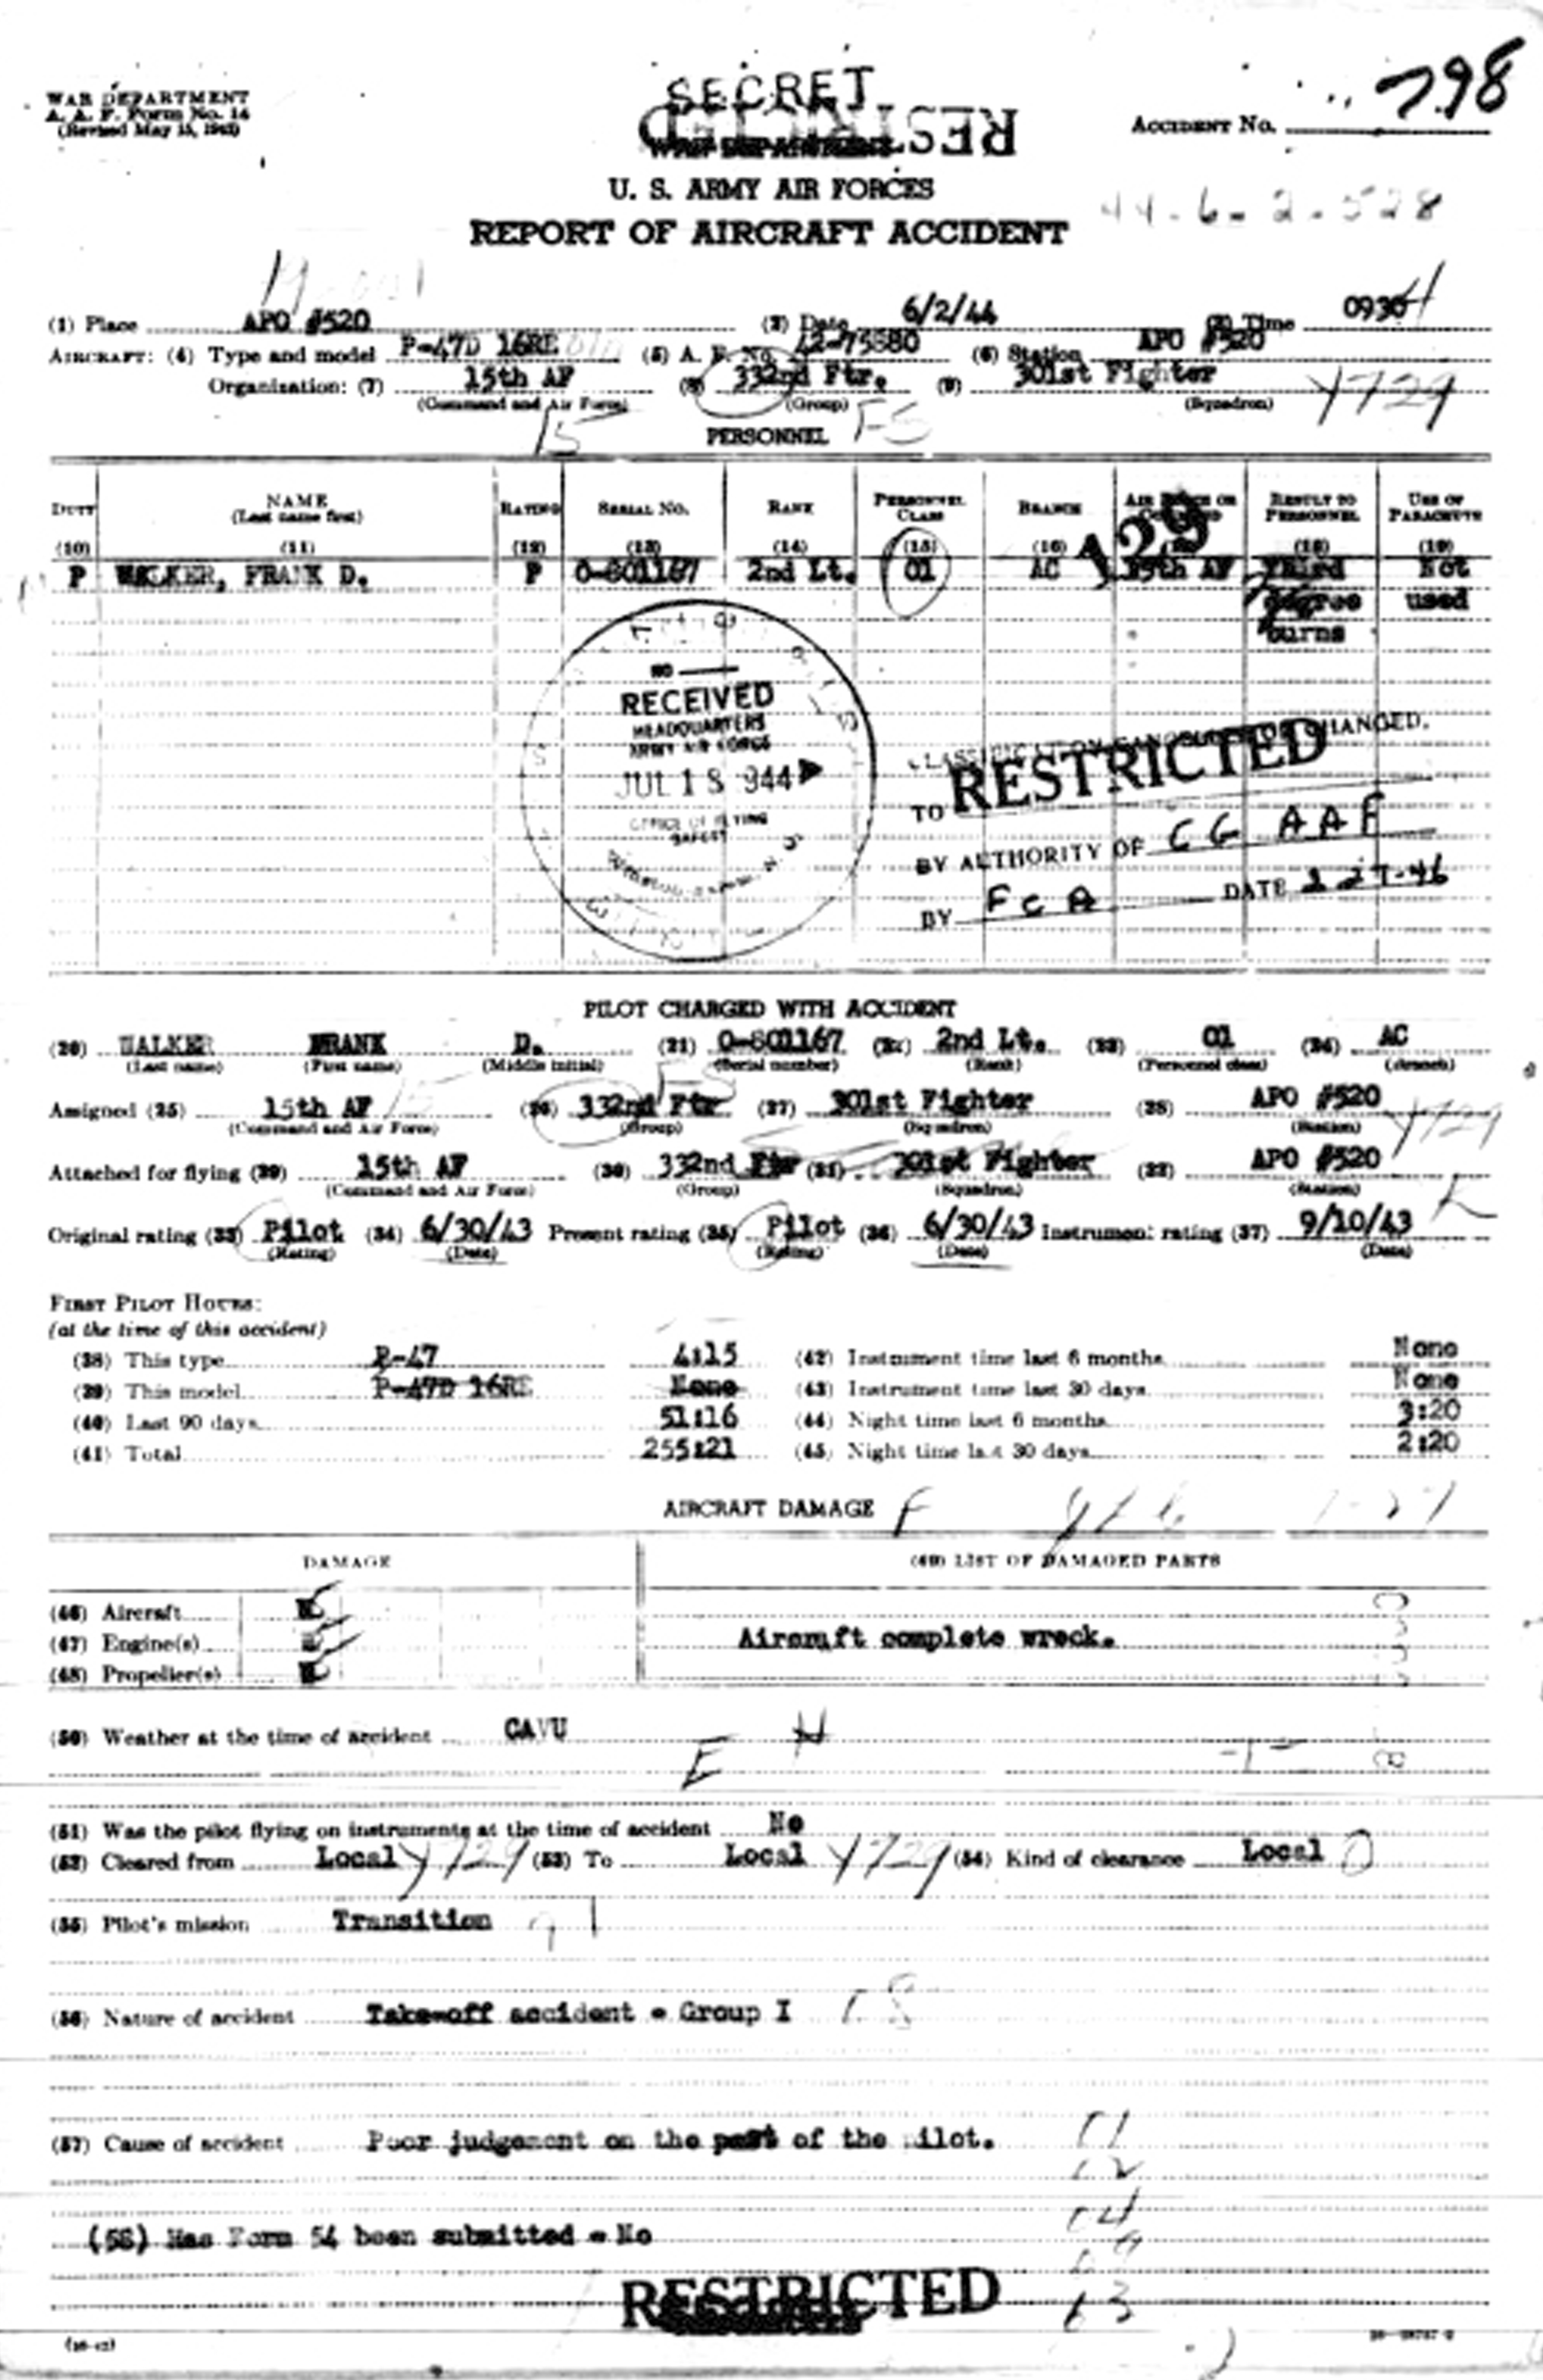 WAR DEPARTMENT
A. A. F. Form No. 14
(Revised May 15, 1942)
SECRET
RESTRICTED
WAR DEPARTMENT
ACCIDENT No. 798
U. S. ARMY AIR FORCES
44-6-2-528
REPORT OF AIRCRAFT ACCIDENT
(1) Place APO #520 (2) Date 6/2/44 (3) Time 0930
AIRCRAFT: (4) Type and model P-47D 16RE (5) A. F. No. 42-75880 (6) Station APO #520
Organization: (7) 15th AF (8) 332nd Ftr. (9) 301st Fighter Y729
(Command and Air Force) (Group) (Squadron)
15 FS
PERSONNEL
DUTY NAME (Last name first) RATING SERIAL No. RANK PERSONNEL CLASS BRANCH AIR FORCE OR COMMAND RESULT TO PERSONNEL USE OF PARACHUTE
129
(10) (11) (12) (13) (14) (15) (16) (18) (19)
P WALKER, FRANK D. P O-801167 2nd Lt. 01 AC 15th AF Third Not
degree used
burns
NO
RECEIVED
HEADQUARTERS
ARMY AIR FORCE
JUL 18 944
OFFICE OF FLYING
SAFETY
CLASSIFICATION CHANGED.
TO RESTRICTED
BY AUTHORITY OF CG AAF
BY FCA DATE 2-27-46
PILOT CHARGED WITH ACCIDENT
(20) WALKER FRANK D. (21) O-801167 (22) 2nd Lt. (23) 01 (24) AC
(Last name) (First name) (Middle initial) (Serial number) (Rank) (Personnel class) (Branch)
Assigned (25) 15th AF 15 (26) 332nd Ftr (27) 301st Fighter (28) APO #520 Y729
(Command and Air Force) (Group) (Squadron) (Station)
Attached for flying (29) 15th AF (30) 332nd Ftr (31) 301st Fighter (32) APO #520
(Command and Air Force) (Group) (Squadron) (Station)
Original rating (33) Pilot (34) 6/30/43 Present rating (35) Pilot (36) 6/30/43 Instrument rating (37) 9/10/43
(Rating) (Date) (Rating) (Date) (Date)
FIRST PILOT HOURS:
(at the time of this accident)
(38) This type P-47 4:15 (42) Instrument time last 6 months None
(39) This model P-47D 16RE None (43) Instrument time last 30 days None
(40) Last 90 days 51:16 (44) Night time last 6 months 3:20
(41) Total 255:21 (45) Night time last 30 days 2:20
AIRCRAFT DAMAGE
DAMAGE (49) LIST OF DAMAGED PARTS
(46) Aircraft
(47) Engine(s) Aircraft complete wreck.
(48) Propeller(s)
(50) Weather at the time of accident CAVU
E
(51) Was the pilot flying on instruments at the time of accident No
(52) Cleared from Local Y729 (53) To Local Y729 (54) Kind of clearance Local
(55) Pilot's mission Transition
(56) Nature of accident Take-off accident - Group I
(57) Cause of accident Poor judgement on the part of the pilot.
(58) Has Form 54 been submitted - No
RESTRICTED